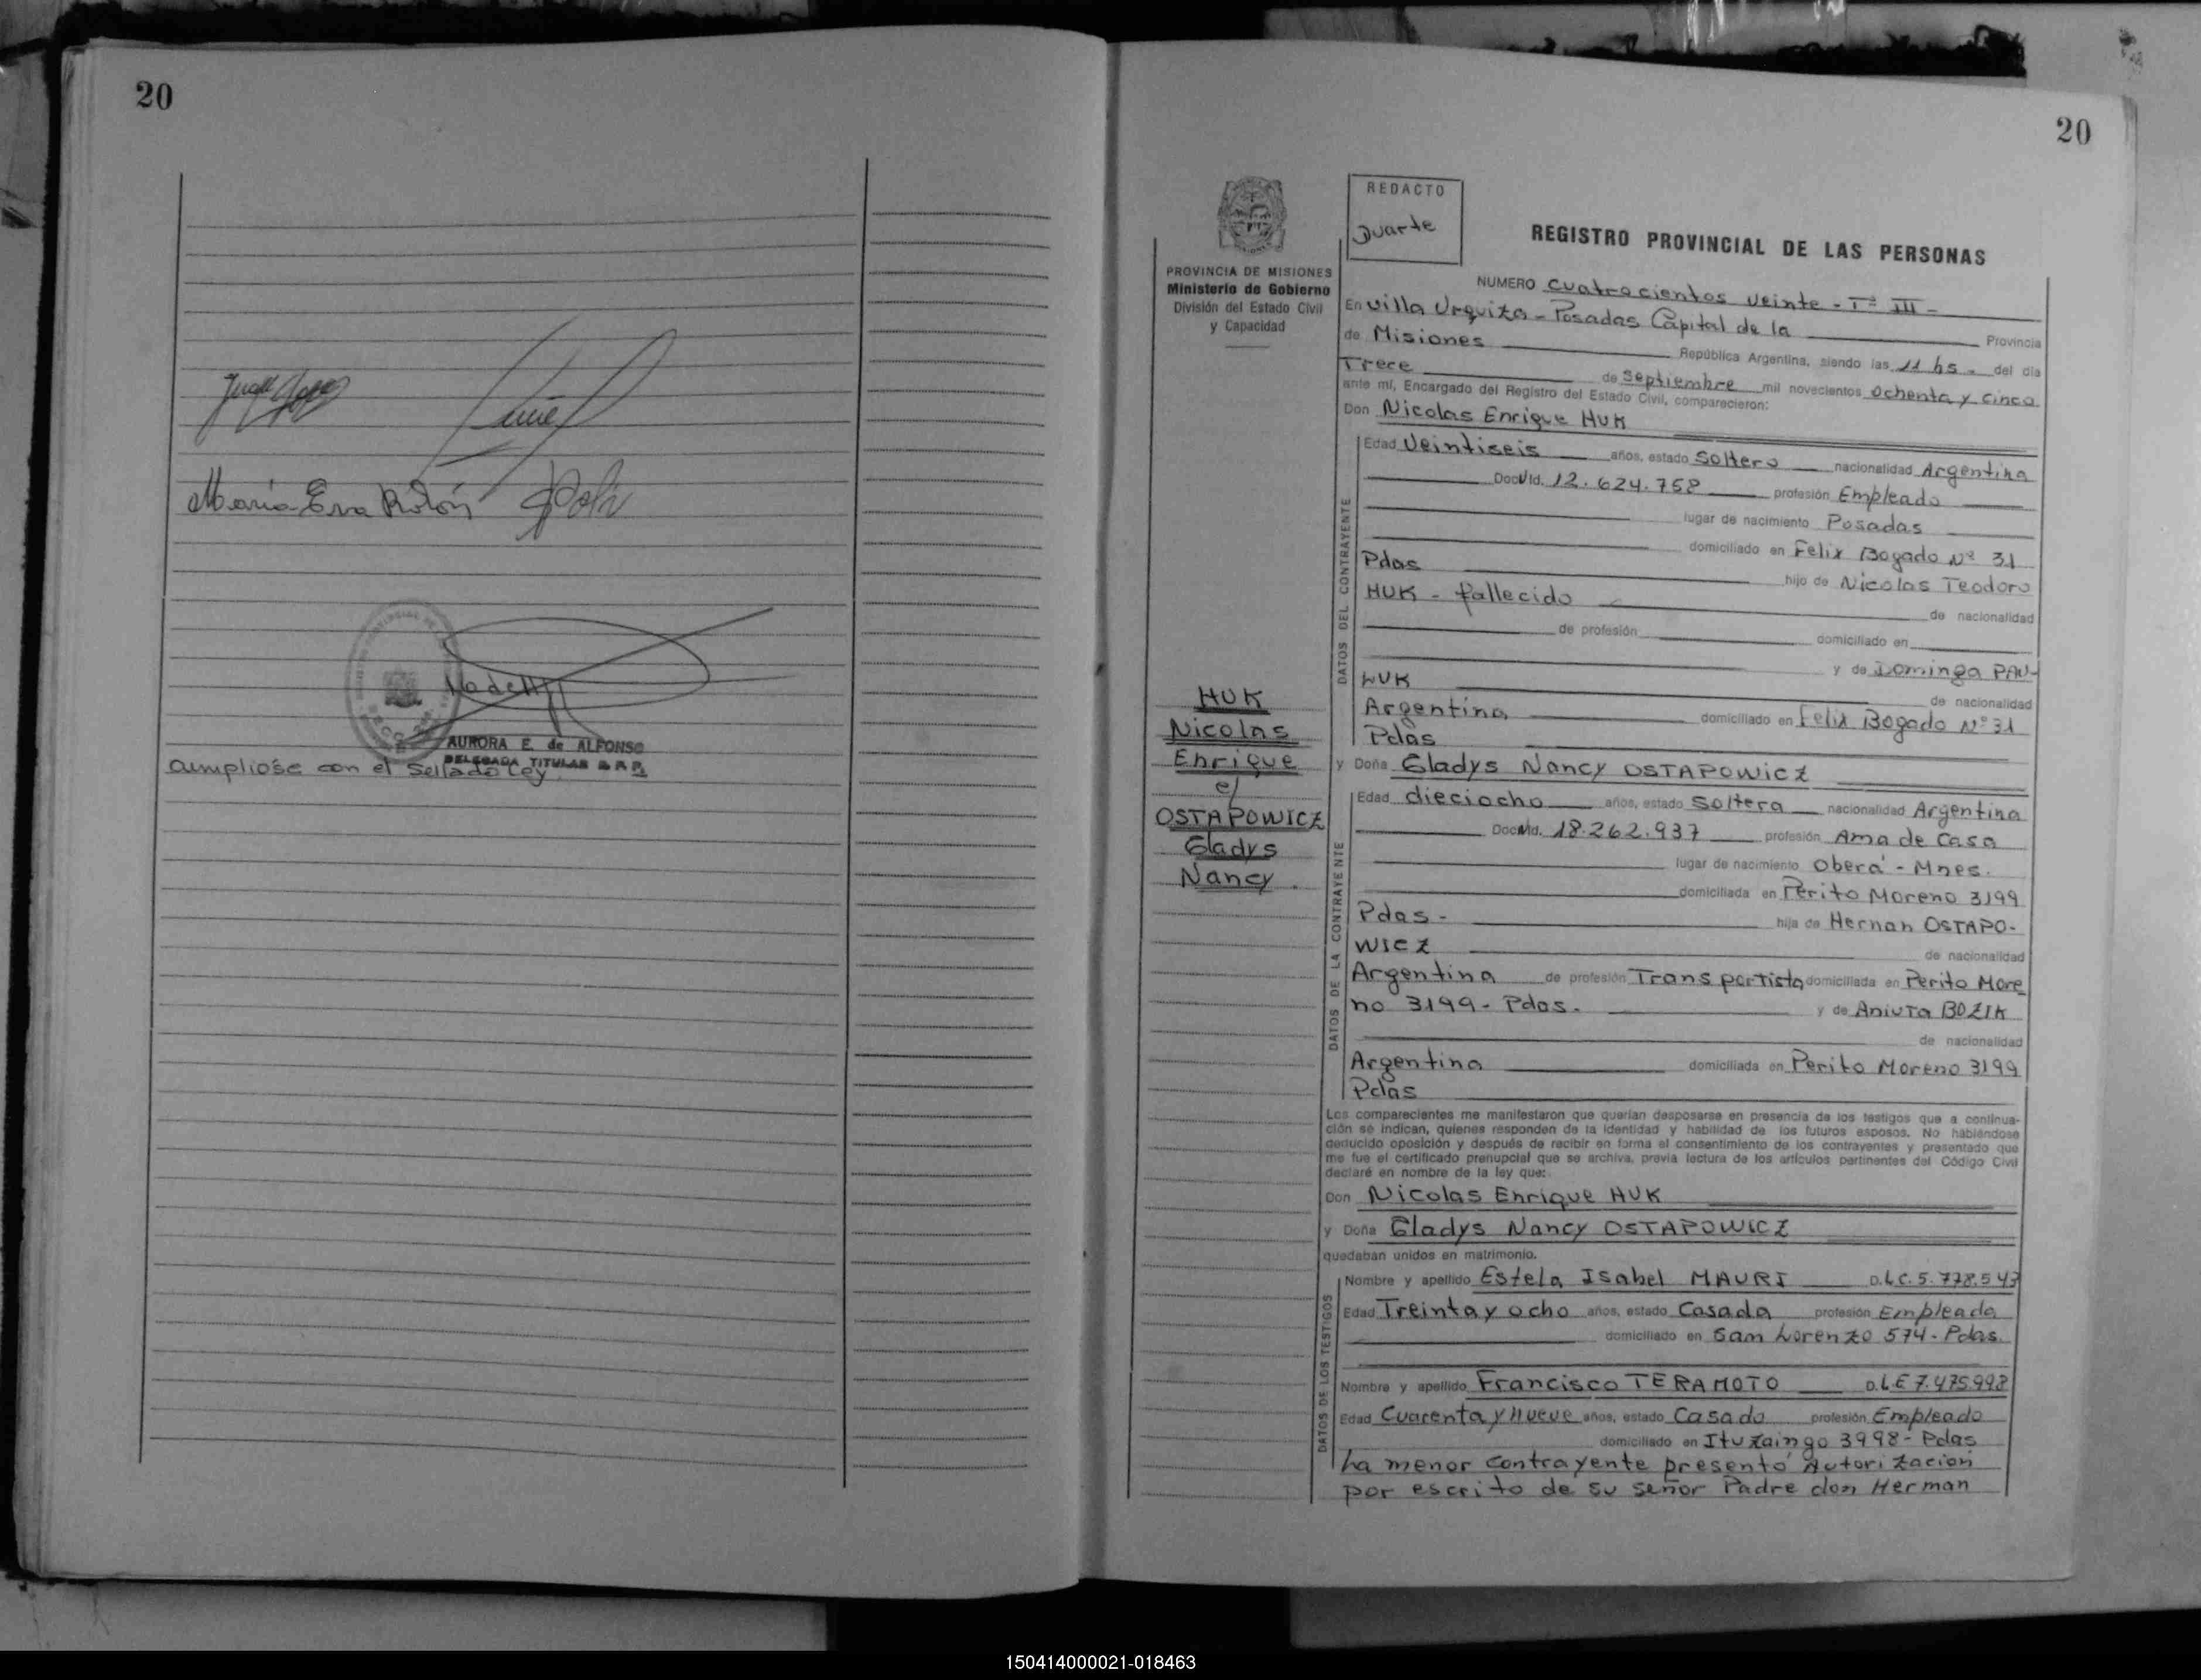 20
María Eva Rolón
AURORA E. de ALFONSO
DELEGADA TITULAR R.P.P.
cumpliose con el Sellado Ley
20
REDACTO
Duarte
PROVINCIA DE MISIONES
Ministerio de Gobierno
División del Estado Civil
y Capacidad
HUK
Nicolas
Enrique
c/
OSTAPOWICZ
Gladys
Nancy
REGISTRO PROVINCIAL DE LAS PERSONAS
NUMERO Cuatrocientos Veinte - Tº III -
En Villa Urquiza - Posadas Capital de la Provincia
de Misiones República Argentina, siendo las 11 hs - del día
Trece de Septiembre mil novecientos Ochenta y Cinco
ante mí, Encargado del Registro del Estado Civil, comparecieron:
Don Nicolas Enrique HUK
DATOS DEL CONTRAYENTE
Edad Veintiseis años, estado Soltero nacionalidad Argentina
Doc. Id. 12.624.758 profesión Empleado
lugar de nacimiento Posadas
domiciliado en Felix Bogado Nº 31
Pdas hijo de Nicolas Teodoro
HUK - fallecido de nacionalidad
de profesión domiciliado en
y de Dominga PAU-
LUK de nacionalidad
Argentina domiciliado en Felix Bogado Nº 31
Pdas
y Doña Gladys Nancy OSTAPOWICZ
DATOS DE LA CONTRAYENTE
Edad dieciocho años, estado Soltera nacionalidad Argentina
Doc. Id. 18.262.937 profesión Ama de Casa
lugar de nacimiento Oberá - Mnes.
domiciliada en Perito Moreno 3199
Pdas - hija de Hernan OSTAPO-
WICZ de nacionalidad
Argentina de profesión Transportista domiciliada en Perito More
no 3199 - Pdas. y de Aniuta BOZIK
de nacionalidad
Argentina domiciliada en Perito Moreno 3199
Pdas
Los comparecientes me manifestaron que querían desposarse en presencia de los testigos que a continua-
ción se indican, quienes responden de la identidad y habilidad de los futuros esposos. No habiéndose
deducido oposición y después de recibir en forma el consentimiento de los contrayentes y presentado que
me fue el certificado prenupcial que se archiva, previa lectura de los artículos pertinentes del Código Civil
declaré en nombre de la ley que:
Don Nicolas Enrique HUK
y Doña Gladys Nancy OSTAPOWICZ
quedaban unidos en matrimonio.
DATOS DE LOS TESTIGOS
Nombre y apellido Estela Isabel MAURI D.L.C. 5.778.543
Edad Treinta y ocho años, estado Casada profesión Empleada
domiciliado en San Lorenzo 574 - Pdas.
Nombre y apellido Francisco TERAMOTO D.L.E 7.475.998
Edad Cuarenta y nueve años, estado Casado profesión Empleado
domiciliado en Ituzaingo 3998 - Pdas
La menor contrayente presentó Autorización
por escrito de su señor Padre don Herman
150414000021-018463